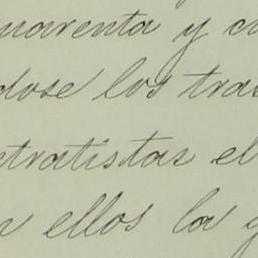 uarenta y c
dose los tras
etratistas el
n ellos la g